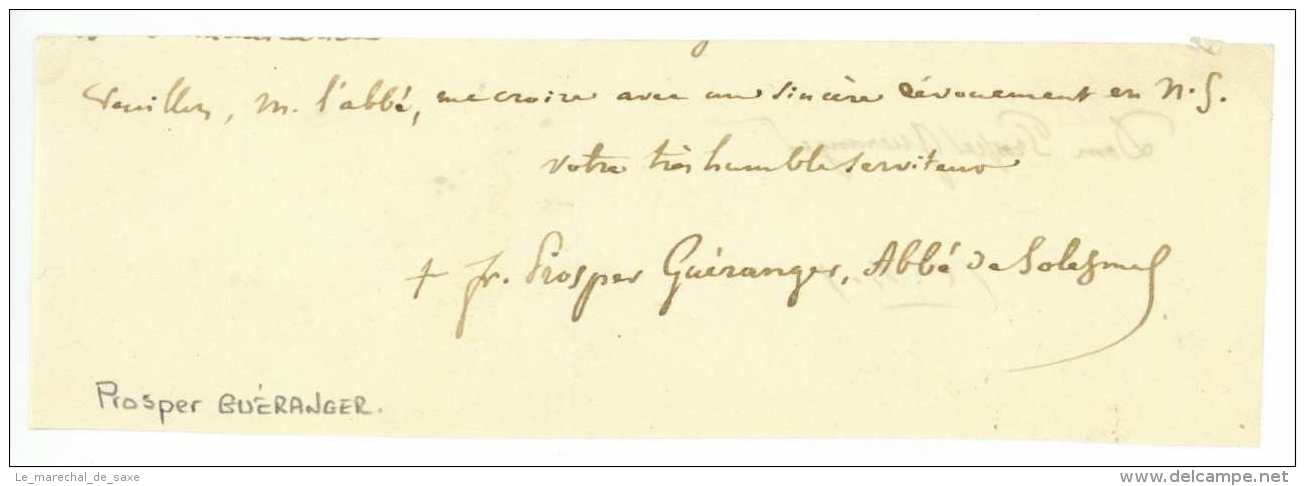 Veuillez, M. l'abbé, me croire avec un sincère dévouement en N.S.
votre très humble serviteur
+ fr. Prosper Guéranger, Abbé de Solesmes
Prosper GUÉRANGER.
Le_marechal_de_saxe
www.delcampe.net